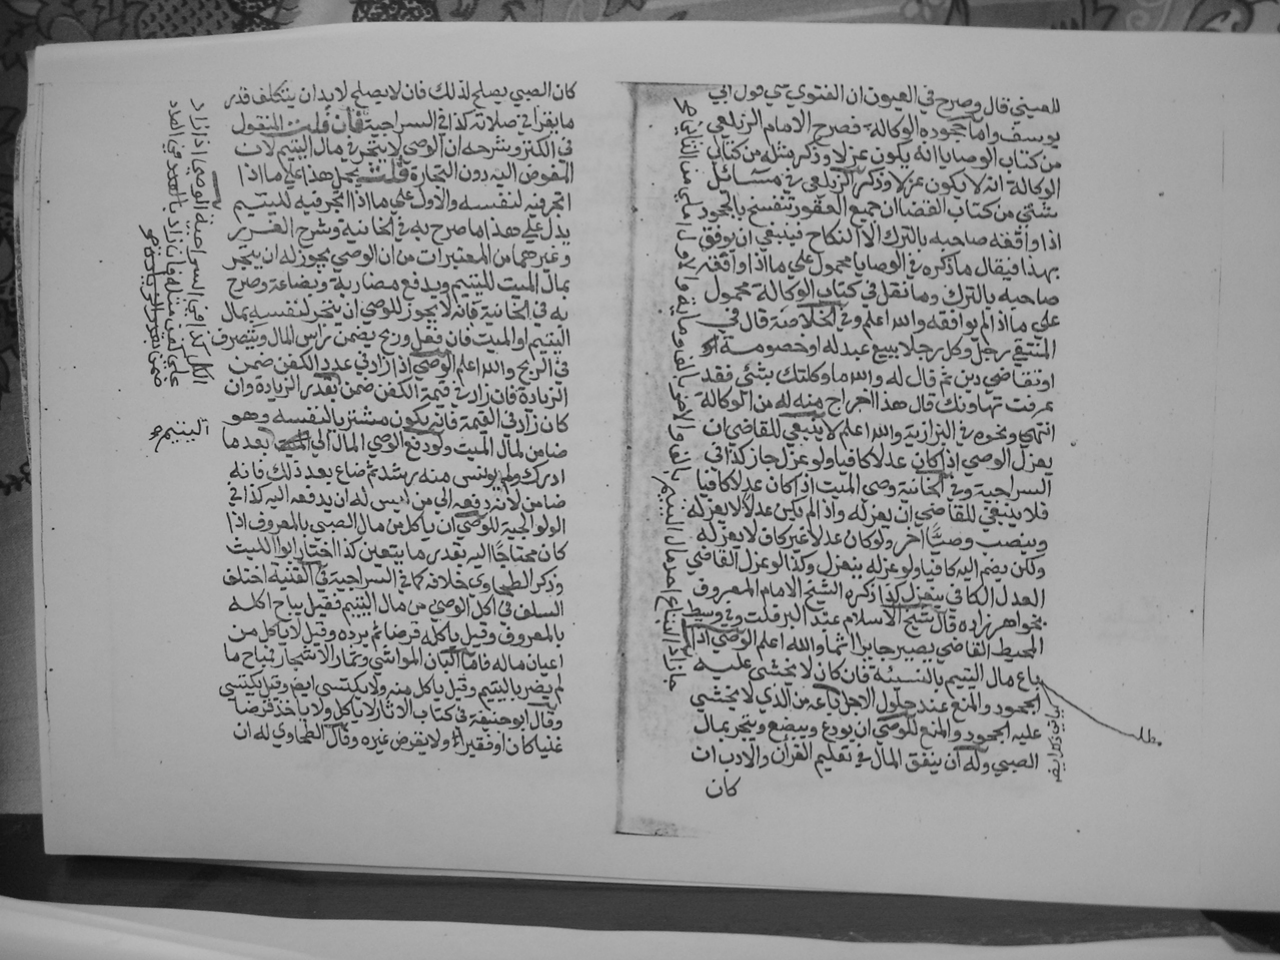 للعيني قال وصرح في العيون ان الفتوي علي قول ابي
يوسف واما جحوده الوكالة فصرح الامام الزيلعي
من كتاب الوصايا انه يكون عزلا وذكر مثله من كتاب
الوكالة انه لا يكون عزلا وذكر الزيلعي في مسائل
شتي من كتاب القضا ان جميع العقود تنفسخ بالجحود
اذا وافقه صاحبه بالترك الا النكاح فينبغي ان يوفق
بهذا فيقال ما ذكره في الوصايا محمول علي ما اذا وافقه
صاحبه بالترك وما نقل في كتاب الوكالة محمول
علي ما اذا لم يوافقه والله اعلم وفي الخلاصة قال في
المنتقي رجل وكل رجلا ببيع عبد له او خصومة له
او تقاضي دين ثم قال له والله ما وكلتك بشئي فقد
عرفت تهاونك قال هذا اخراج منه له من الوكالة
انتهي ونحوه في البزازية والله اعلم لا ينبغي للقاضي ان
يعزل الوصي اذا كان عدلا كافيا ولو عزل جاز كذا في
السراجية وفي الخانية وصي الميت اذا كان عدلا كافيا
فلا ينبغي للقاضي ان يعزله واذا لم يكن عدلا لا يعزله
وينصب وصيا اخر ولو كان عدلا غير كاف لا يعزله
ولكن يضم اليه كافيا ولو عزله ينعزل وكذا لو عزل القاضي
العدل الكافي ينعزل كذا ذكره الشيخ الامام المعروف
بخواهر زاده قال شيخ الاسلام عبد البر قلت وفي وسيط
المحيط القاضي يصير جايرا اثما والله اعلم الوصي اذا
باع مال اليتيم بالنسئة فان كان لا يخشي عليه
الجحود والمنع عند حلول الاجل باعه من الذي لا يخشي
عليه الجحود والمنع للوصي ان يودع ويبضع ويتجر بمال
الصبي وله ان ينفق المال في تعليم القران والادب ان
كان
كان الصبي يصلح لذلك فان لا يصلح لا بد ان يتكلف قدر
ما يقرا في صلاته كذا في السراجية فان قلت المنقول
في الكنز وشرحه ان الوصي لا يتجر في مال اليتيم لان
المفوض اليه دون التجارة قلت يحمل هذا علي ما اذا
اتجر فيه لنفسه والاول علي ما اذا اتجر فيه لليتيم
يدل علي هذا ما صرح به في الخانية وشرح الغرر
وغيرهما من المعتبرات من ان الوصي يجوز له ان يتجر
بمال الميت لليتيم ويدفع مضاربة وبضاعة وصرح
به في الخانية فانه لا يجوز للوصي ان يتجر لنفسه بمال
اليتيم او الميت فان فعل وربح يضمن راس المال ويتصرف
في الربح والله اعلم الوصي اذا زاد في عدد الكفن ضمن
الزيادة فان زاد في قيمة الكفن ضمن بقدر الزيادة وان
كان زاد في القيمة فانه يكون مشتريا لنفسه وهو
ضامن لمال الميت ولو دفع الوصي المال الي بعد ما
ادرك ولم يونس منه رشد ثم ضاع بعد ذلك فانه
ضامن لانه دفعه الي من ليس له ان يدفعه اليه كذا في
الولوالجية للوصي ان ياكل من مال الصبي بالمعروف اذا
كان محتاجا اليه بقدر ما يتعين كذا اختار ابو الليث
وذكر الطحاوي خلافه كما في السراجية في القنية اختلف
السلف في اكل الوصي من مال اليتيم فقيل يباح اكله
بالمعروف وقيل ياكله قرضا ثم يرده وقيل لا ياكل من
اعيان ماله فاما البان المواشي وثمار الاشجار فيباح ما
لم يضر باليتيم وقيل ياكل منه ولا يكتسي ايضا وقيل يكتسي
وقال ابو حنيفة في كتاب الاثار لا ياكل ولا ياخذ قرضا
غنيا كان او فقيرا ولا يقرض غيره وقال الطحاوي له ان
اليتيم